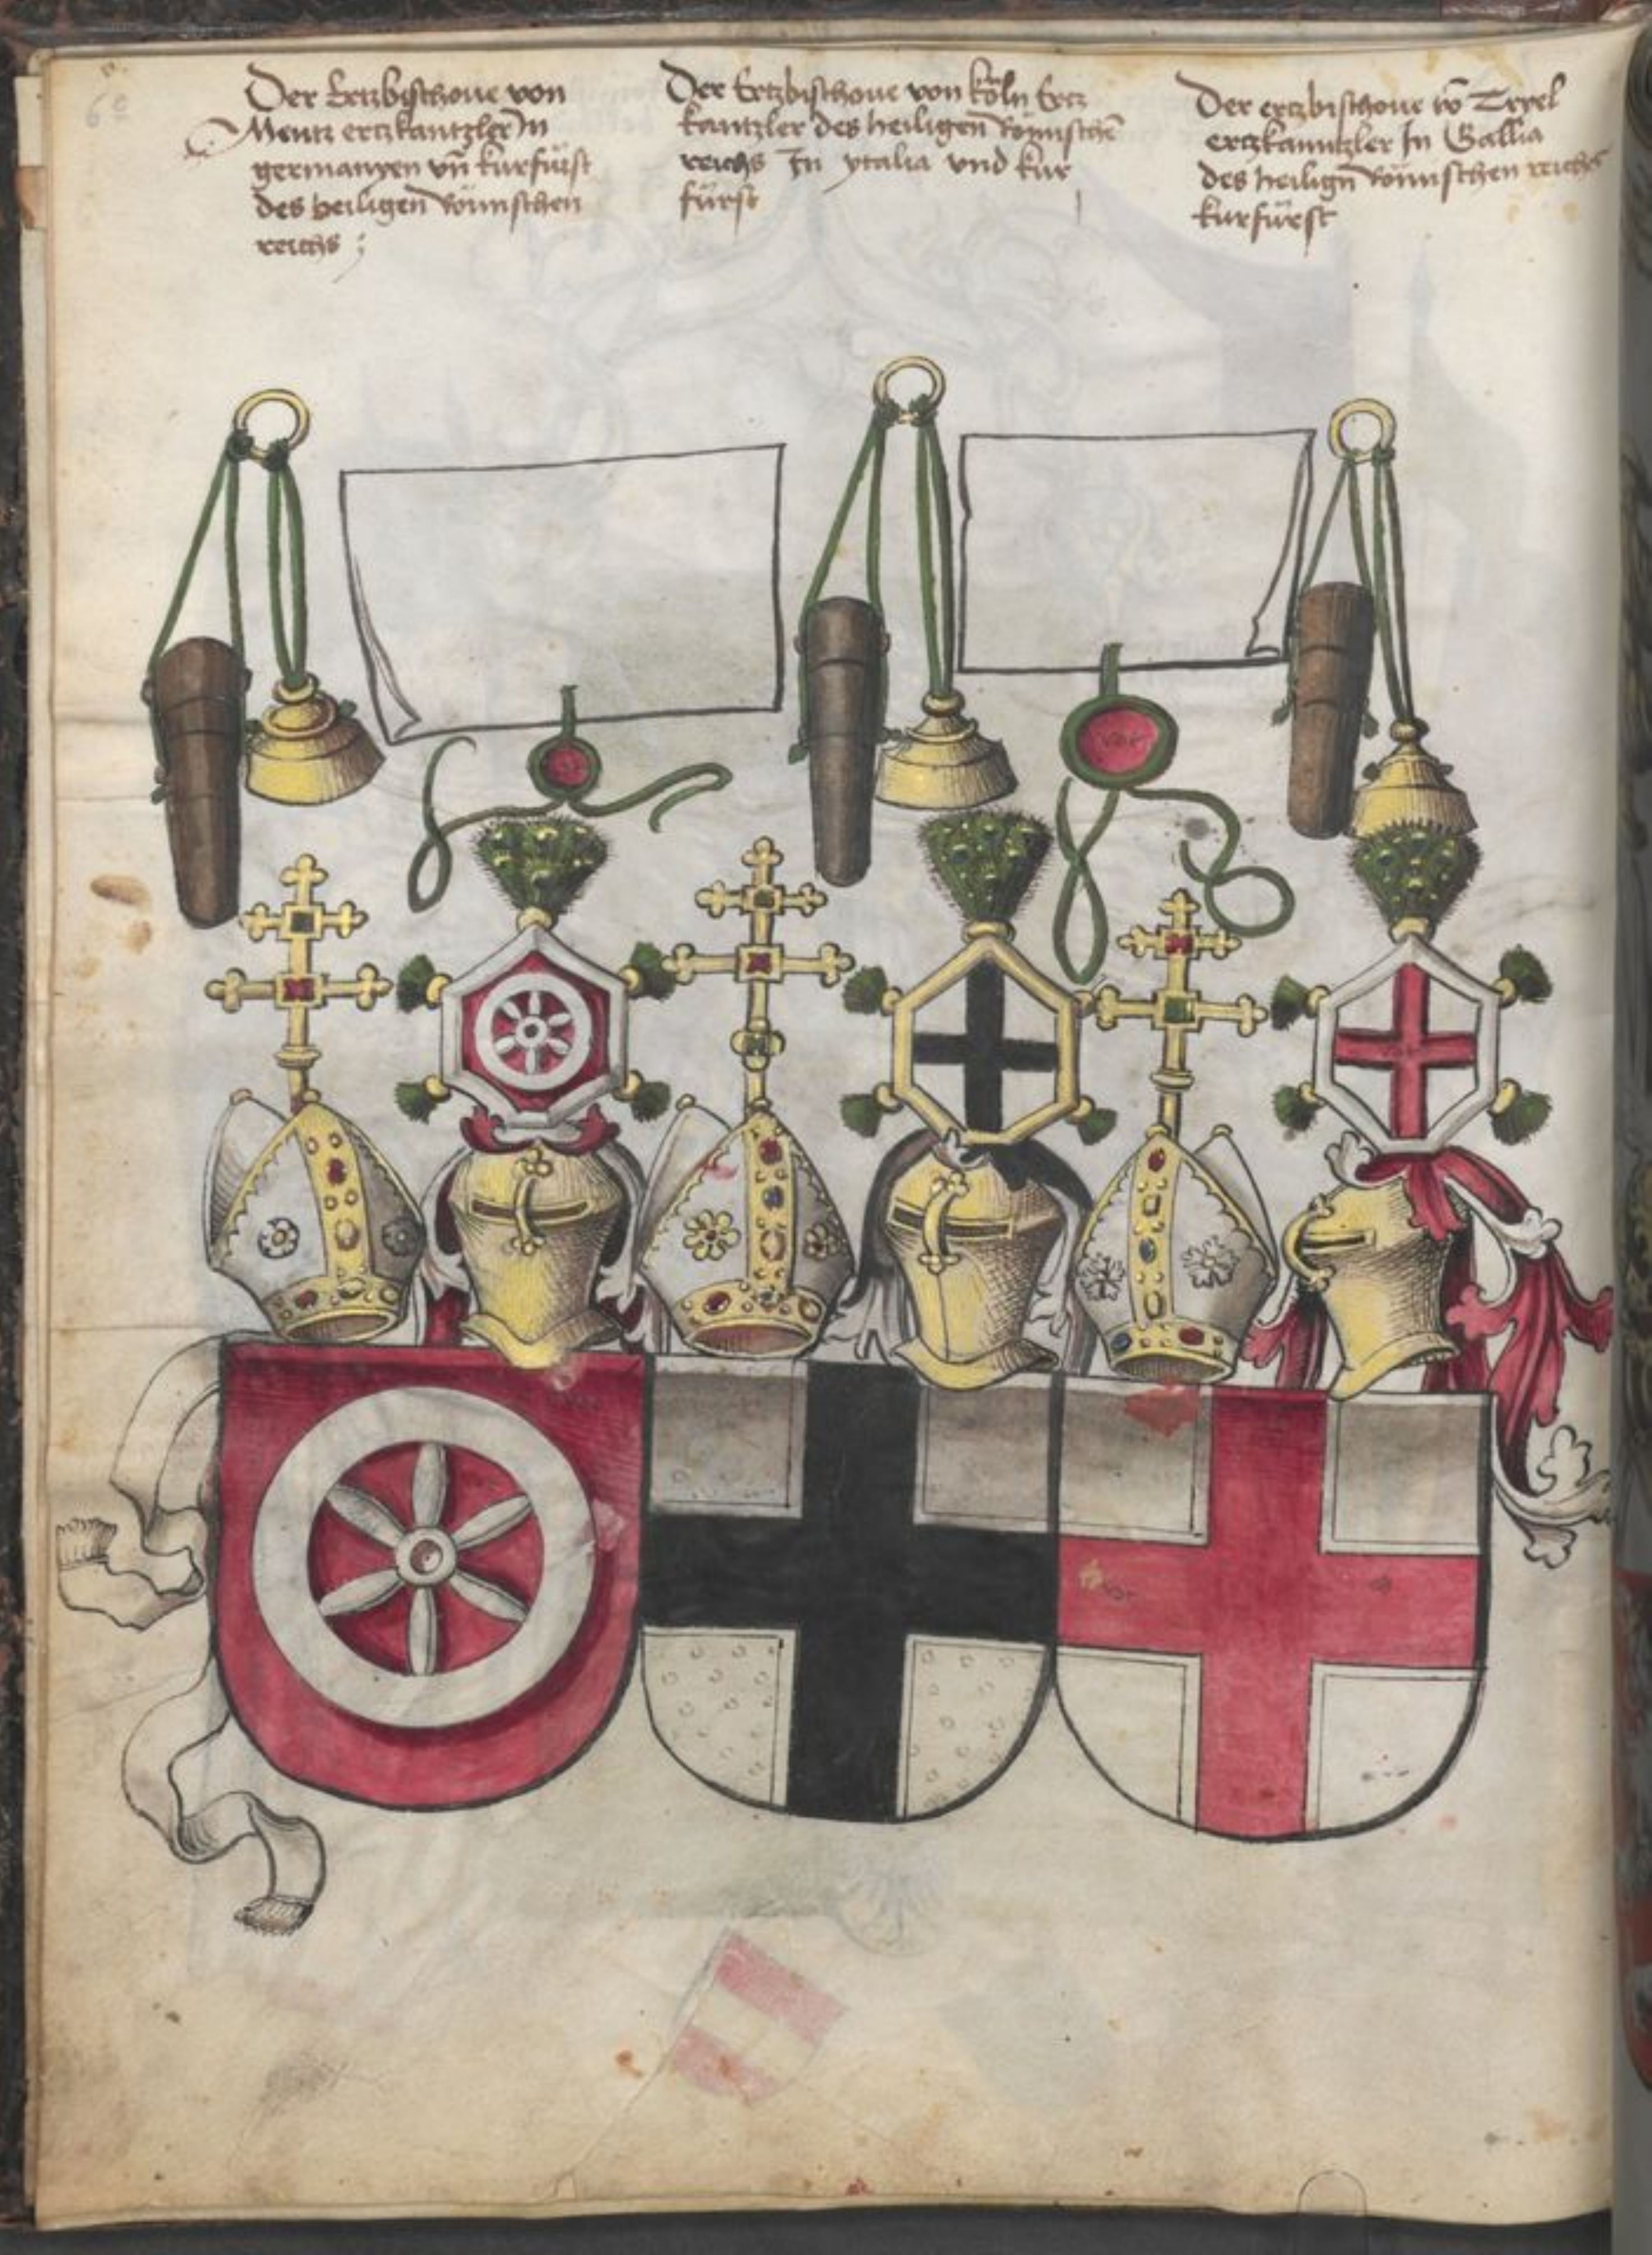 6c
Der Ertzbischoue von
Mentz ertzkantzler In
germanyen vn̄ kurfürst
des heiligen Römischen
reichs ;
Der Ertzbischoue von köln Ertz
kantzler des heiligen Römischen
reichs In ytalia vnd kur
fürst
Der ertzbischoue vō Tryel
ertzkanntzler In Gallia
des heilign̄ Römischen reichs
kurfürst